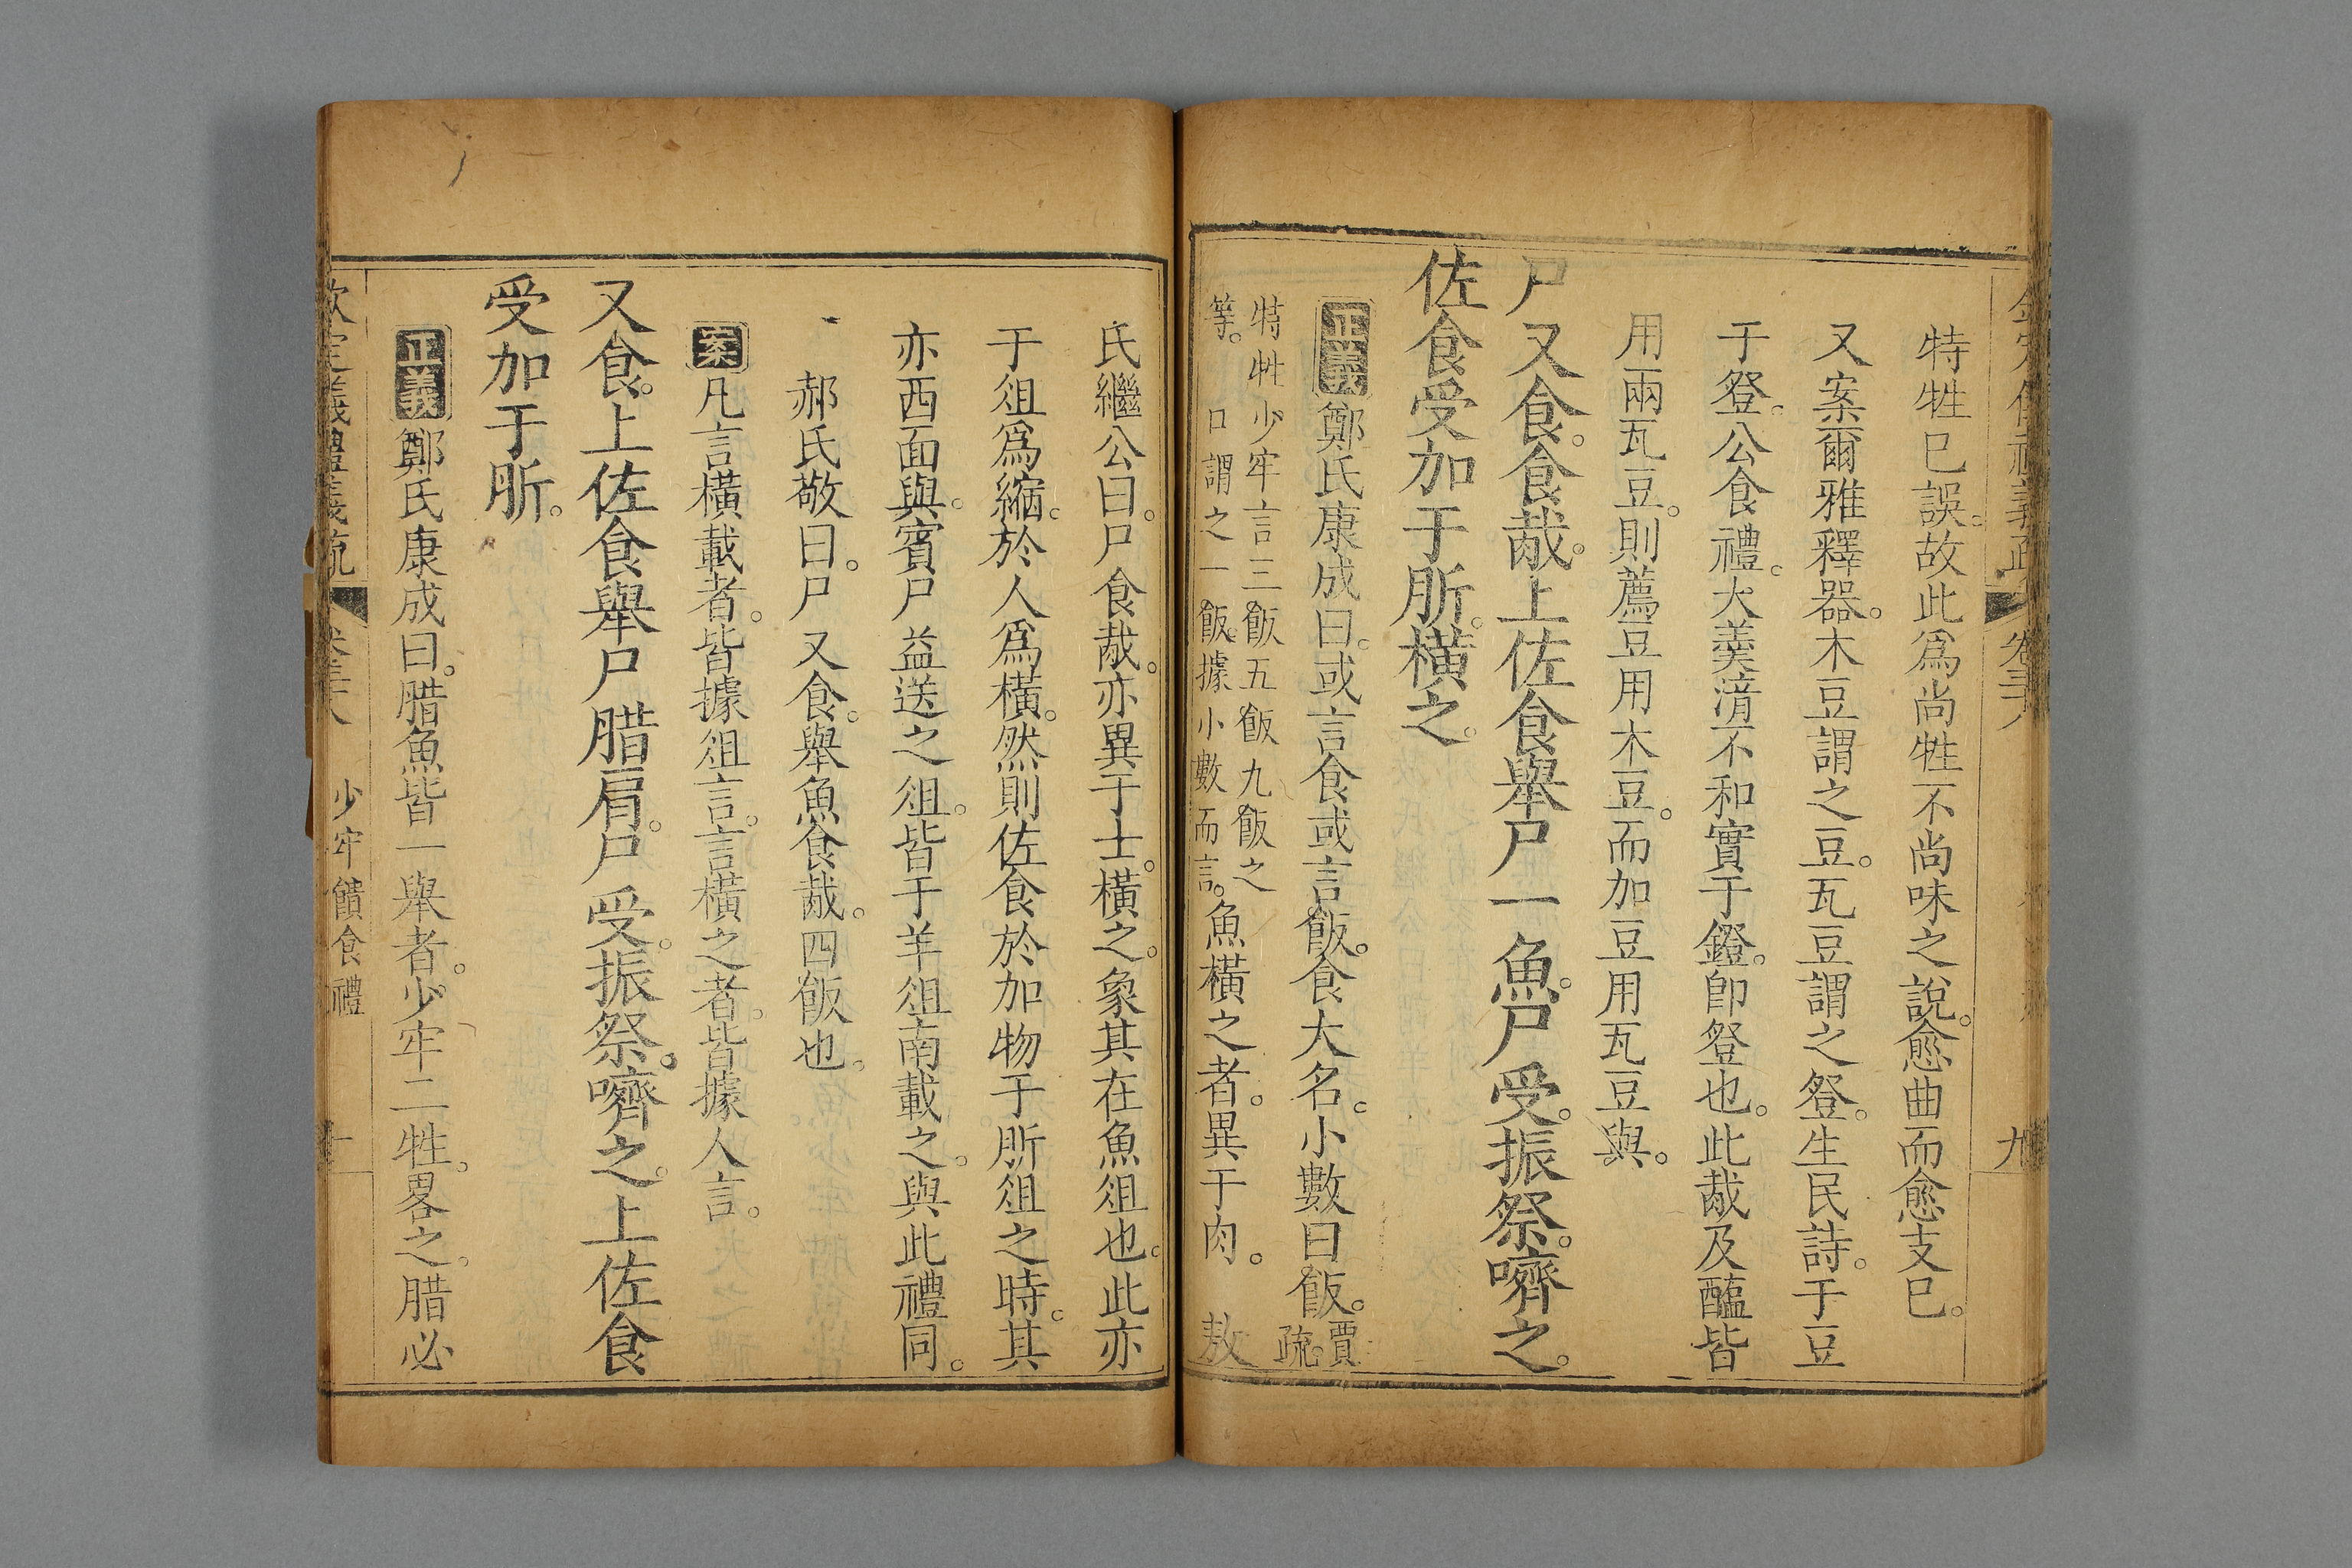 特牲巳誤。故此爲尚牲不尚味之說。愈曲而愈支巳。
又案爾雅釋器。木豆謂之豆。瓦豆謂之登。生民詩。于豆
于登。公食禮。大羹湆不和實于鐙。卽登也。此胾及醢皆
用兩瓦豆。則薦豆用木豆。而加豆用瓦豆與。
尸又食。食胾。上佐食舉尸一魚。尸受。振祭。嚌之。
佐食受加于肵。橫之。
正義 鄭氏康成曰。或言食或言飯。食大名。小數曰飯。賈疏。
特牲少牢言三飯五飯九飯之
等。口謂之一飯。據小數而言。魚橫之者。異于肉。 敖
氏繼公曰。尸食胾。亦異于士。橫之。象其在魚俎也。此亦
于俎爲縮。於人爲橫。然則佐食於加物于肵俎之時。其
亦西面與。賓尸益送之俎。皆于羊俎南載之。與此禮同。
郝氏敬曰。尸又食。舉魚食胾。四飯也。
案 凡言橫載者。皆據俎言。言橫之者。皆據人言。
又食。上佐食舉尸腊肩。尸受。振祭。嚌之。上佐食
受加于肵。
正義 鄭氏康成曰。腊魚皆一舉者。少牢二牲。畧之。腊必
欽定儀禮義疏 卷三十八 少牢饋食禮